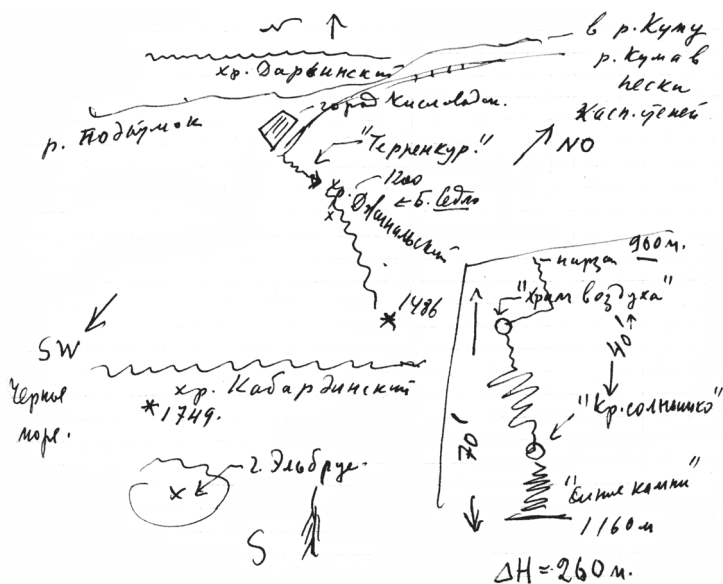 N
хр. Дарвинский
в р. Куму
р. Кума в
пески
Касп. степей
р. Подкумок
город Кисловодск.
"Терренкур."
NO
1200
хр. Джинальский
← Б. Седло
1486
SW
Черное
море.
хр. Кабардинский
1749.
г. Эльбрус.
S
900 м.
нарзан
"храм воздуха"
40'
70'
"Кр. солнышко"
"Синие камни"
1160 м
ΔH = 260 м.